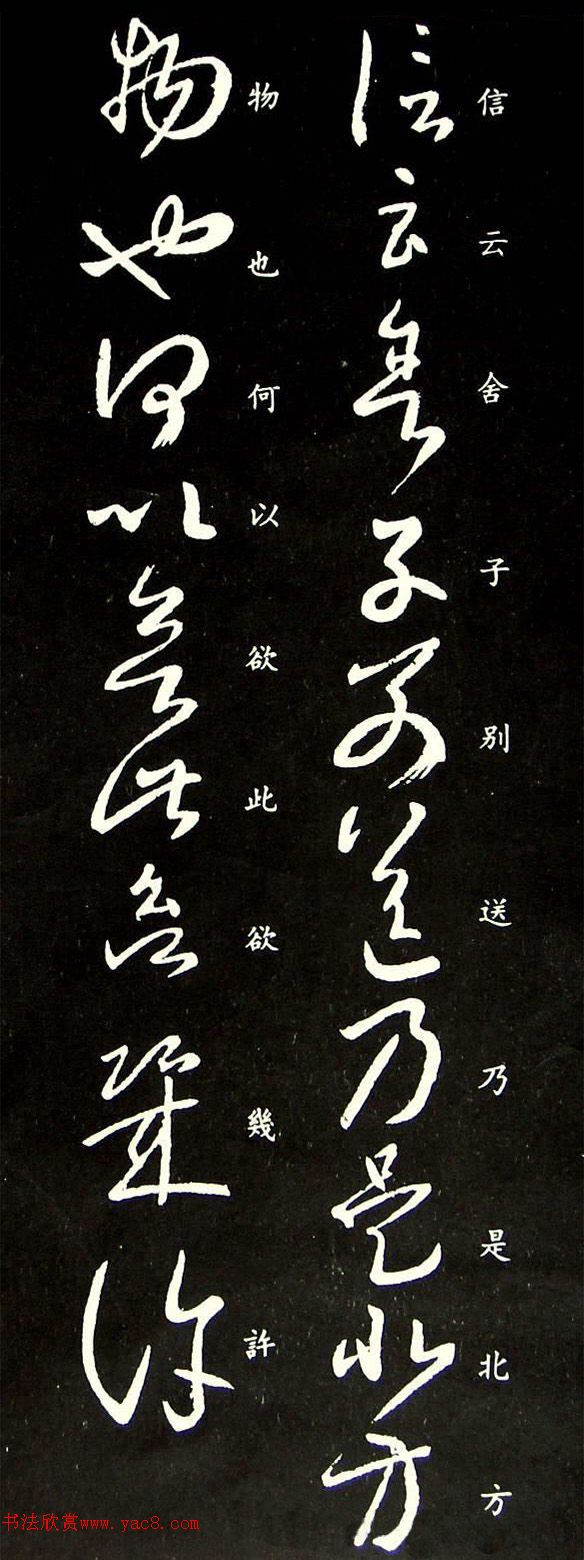 信云舍子别送乃是北方
物也何以欲此欲幾許
信云舍子别送乃是北方
物也何以欲此欲幾許
书法欣赏www.yac8.com